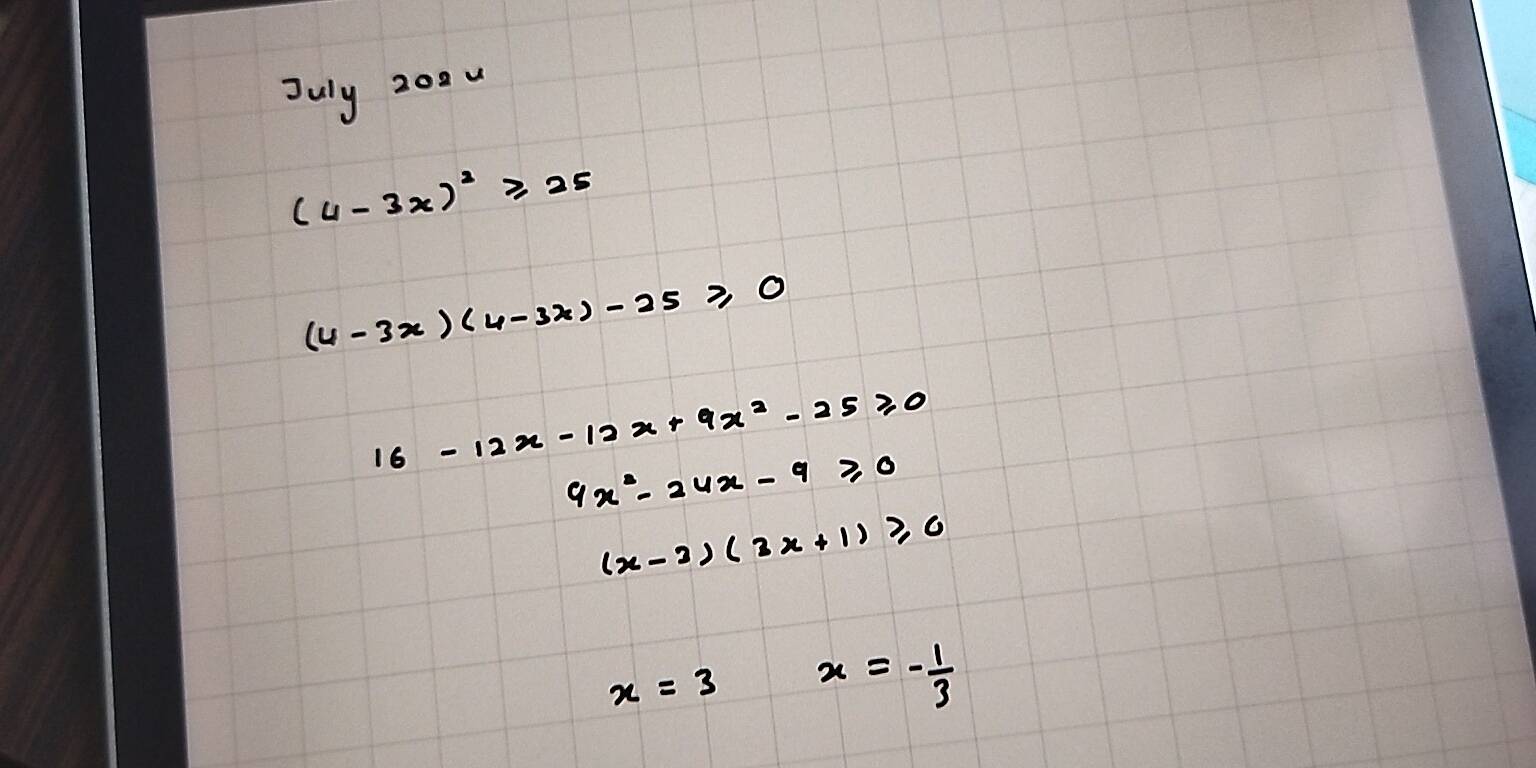 July 2024
(4-3x)² ⩾ 25
(4-3x)(4-3x)-25 ⩾ 0
16 -12x-12x+9x²-25⩾0
9x²-24x-9 ⩾0
(x-3)(3x+1)⩾0
x = 3 x = -1/3